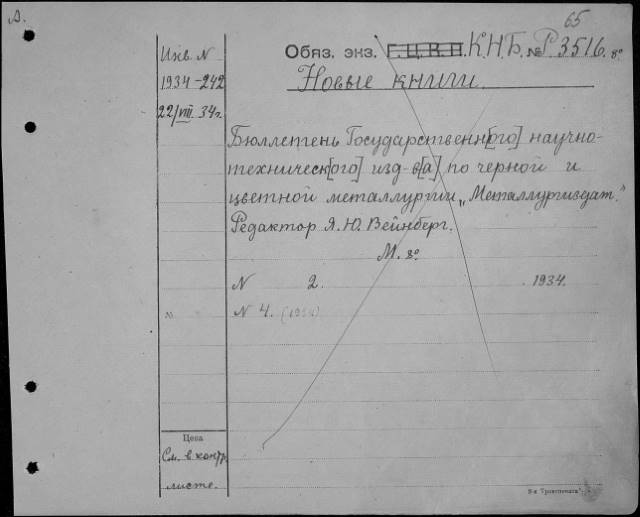 А.
65
Инв. N
1934-242
22/VIII. 34г.
Обяз. экз. Г.Ц.В.П. К.Н.Б. № Р 3516. 8°
Новые книги.
Бюллетень Государственн[ого] научно-
техническ[ого] изд-в[а] по черной и
цветной металлургии „Металлургиздат."
Редактор Я. Ю. Вейнберг.
М. 8°
N 2. 1934.
№ N 4. (1934)
Цена
См. в контр.
листе.